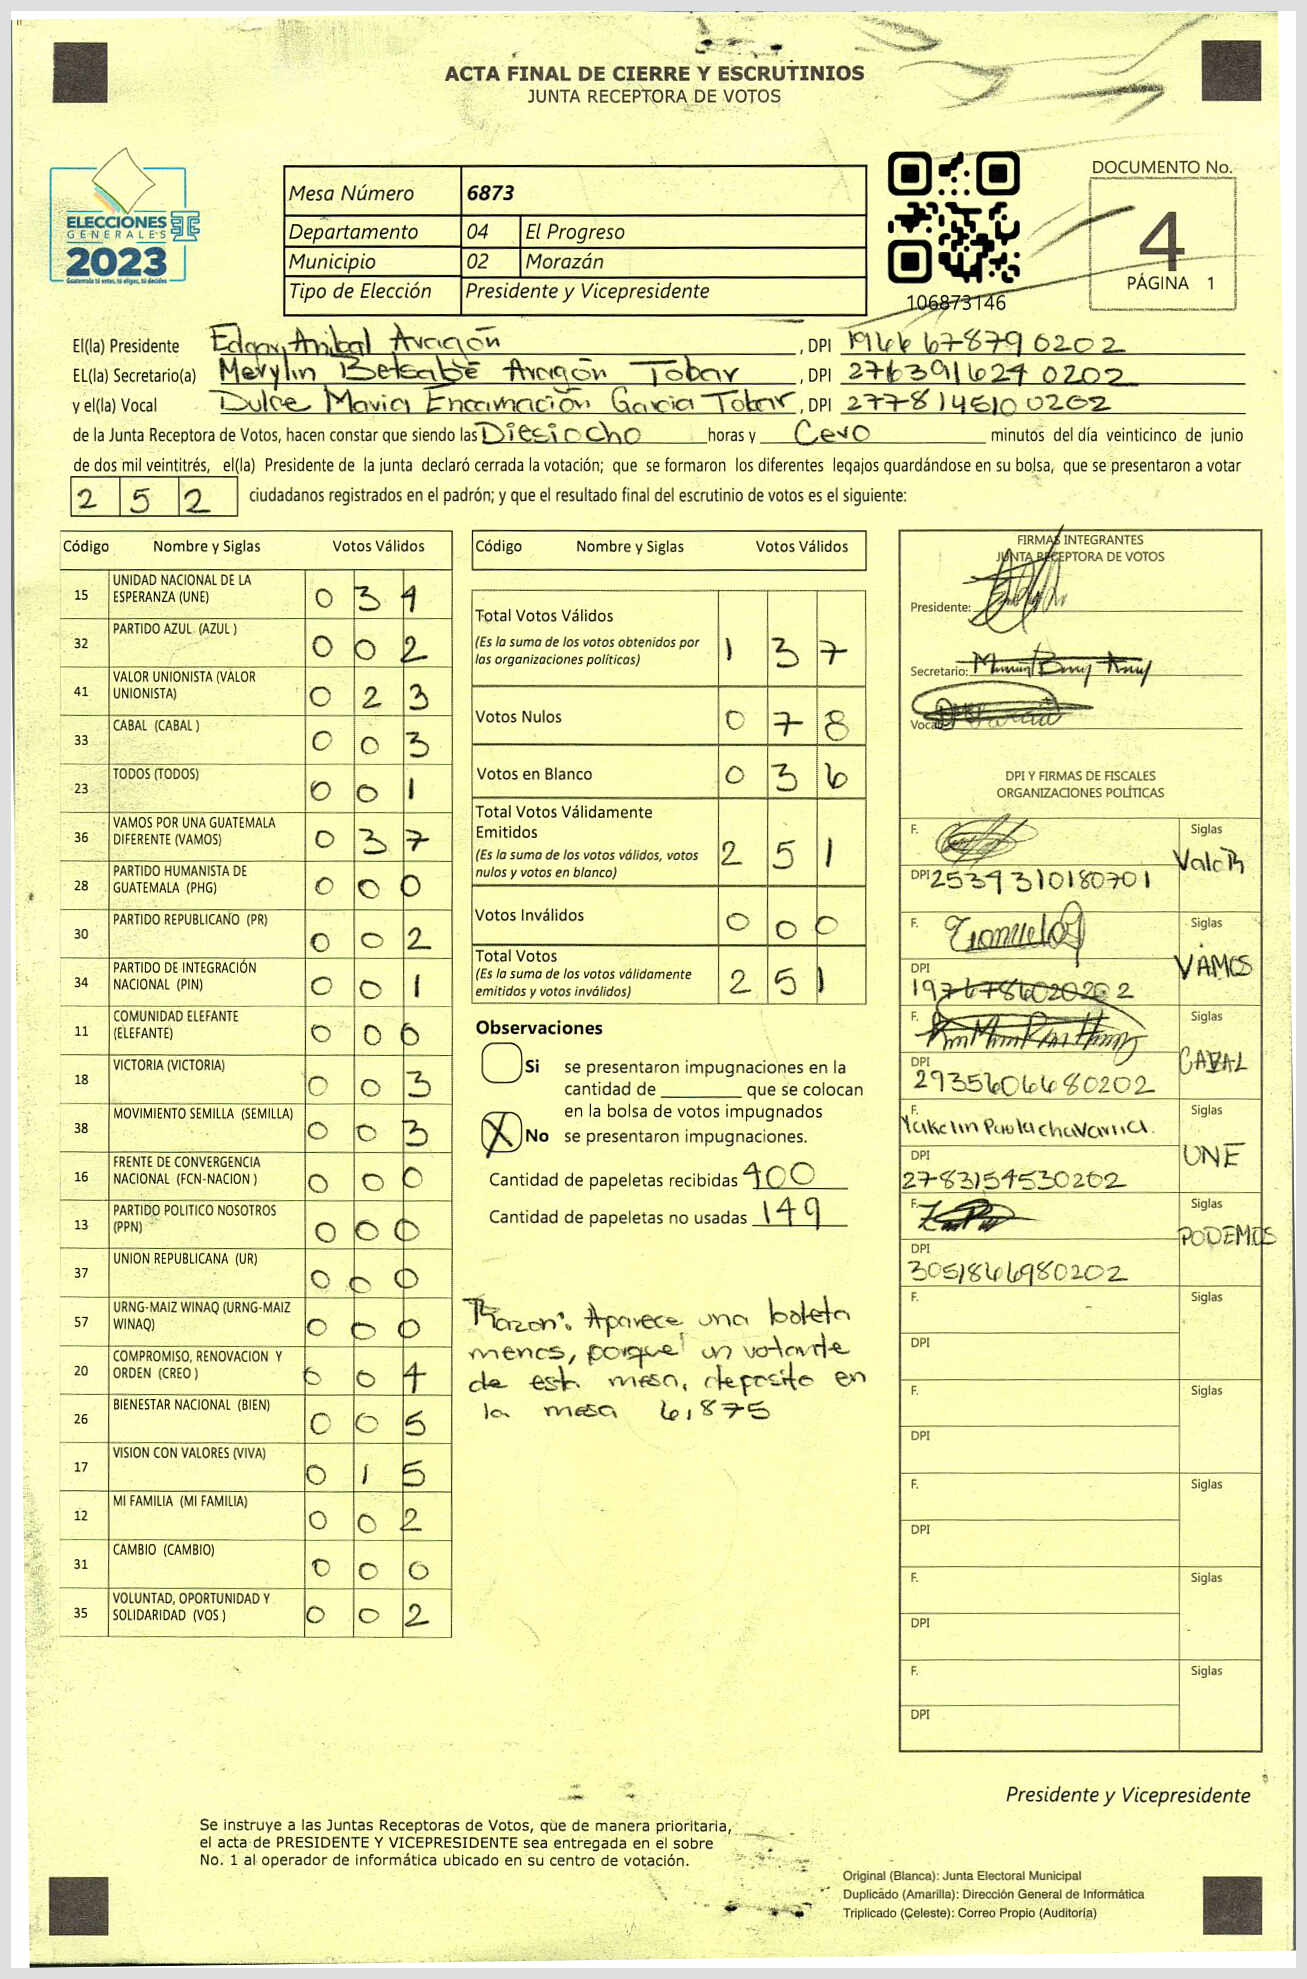 ACTA FINAL DE CIERRE Y ESCRUTINIOS
JUNTA RECEPTORA DE VOTOS
ELECCIONES
GENERALES
2023
Guatemala tú votas, tú eliges, tú decides
Mesa Número 6873
Departamento 04 El Progreso
Municipio 02 Morazán
Tipo de Elección Presidente y Vicepresidente
106873146
DOCUMENTO No.
4
PÁGINA 1
El(la) Presidente Edgar Anibal Aragón, DPI 1966678790202
EL(la) Secretario(a) Merylin Betsabé Aragón Tobar, DPI 2763916240202
y el(la) Vocal Dulce Maria Encarnación Garcia Tobar, DPI 2778145100202
de la Junta Receptora de Votos, hacen constar que siendo las Diesiocho horas y Cero minutos del día veinticinco de junio
de dos mil veintitrés, el(la) Presidente de la junta declaró cerrada la votación; que se formaron los diferentes legajos guardándose en su bolsa, que se presentaron a votar
2 5 2 ciudadanos registrados en el padrón; y que el resultado final del escrutinio de votos es el siguiente:
Código Nombre y Siglas Votos Válidos
15 UNIDAD NACIONAL DE LA ESPERANZA (UNE) 0 3 4
32 PARTIDO AZUL (AZUL ) 0 0 2
41 VALOR UNIONISTA (VALOR UNIONISTA) 0 2 3
33 CABAL (CABAL ) 0 0 3
23 TODOS (TODOS) 0 0 1
36 VAMOS POR UNA GUATEMALA DIFERENTE (VAMOS) 0 3 7
28 PARTIDO HUMANISTA DE GUATEMALA (PHG) 0 0 0
30 PARTIDO REPUBLICANO (PR) 0 0 2
34 PARTIDO DE INTEGRACIÓN NACIONAL (PIN) 0 0 1
11 COMUNIDAD ELEFANTE (ELEFANTE) 0 0 0
18 VICTORIA (VICTORIA) 0 0 3
38 MOVIMIENTO SEMILLA (SEMILLA) 0 0 3
16 FRENTE DE CONVERGENCIA NACIONAL (FCN-NACION ) 0 0 0
13 PARTIDO POLITICO NOSOTROS (PPN) 0 0 0
37 UNION REPUBLICANA (UR) 0 0 0
57 URNG-MAIZ WINAQ (URNG-MAIZ WINAQ) 0 0 0
20 COMPROMISO, RENOVACION Y ORDEN (CREO ) 0 0 4
26 BIENESTAR NACIONAL (BIEN) 0 0 5
17 VISION CON VALORES (VIVA) 0 1 5
12 MI FAMILIA (MI FAMILIA) 0 0 2
31 CAMBIO (CAMBIO) 0 0 0
35 VOLUNTAD, OPORTUNIDAD Y SOLIDARIDAD (VOS ) 0 0 2
Código Nombre y Siglas Votos Válidos
Total Votos Válidos 1 3 7
(Es la suma de los votos obtenidos por
las organizaciones políticas)
Votos Nulos 0 7 8
Votos en Blanco 0 3 6
Total Votos Válidamente
Emitidos 2 5 1
(Es la suma de los votos válidos, votos
nulos y votos en blanco)
Votos Inválidos 0 0 0
Total Votos 2 5 1
(Es la suma de los votos válidamente
emitidos y votos inválidos)
Observaciones
Si se presentaron impugnaciones en la
cantidad de ________ que se colocan
en la bolsa de votos impugnados
X No se presentaron impugnaciones.
Cantidad de papeletas recibidas 400
Cantidad de papeletas no usadas 149
Razon: Aparece una boleta
menos, porque un votante
de esta mesa, deposito en
la mesa 6,875
FIRMAS INTEGRANTES
JUNTA RECEPTORA DE VOTOS
Presidente:
Secretario:
Vocal:
DPI Y FIRMAS DE FISCALES
ORGANIZACIONES POLÍTICAS
F. Siglas Valor
DPI 2539310180701
F. Siglas VAMOS
DPI 1976786020202
F. Siglas CABAL
DPI 2935606680202
F. Yakelin Paola chavarria. Siglas UNE
DPI 2783154530202
F. Siglas PODEMOS
DPI 3051866980202
F. Siglas
DPI
F. Siglas
DPI
F. Siglas
DPI
F. Siglas
DPI
F. Siglas
DPI
Presidente y Vicepresidente
Se instruye a las Juntas Receptoras de Votos, que de manera prioritaria,
el acta de PRESIDENTE Y VICEPRESIDENTE sea entregada en el sobre
No. 1 al operador de informática ubicado en su centro de votación.
Original (Blanca): Junta Electoral Municipal
Duplicado (Amarilla): Dirección General de Informática
Triplicado (Celeste): Correo Propio (Auditoría)